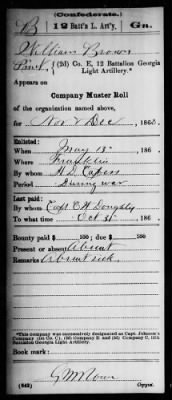 (Confederate.)
B 12 Batt'n L. Art'y, Ga.
William Brown
Pvt., (2d) Co. E, 12 Battalion Georgia
Light Artillery.*
Appears on
Company Muster Roll
of the organization named above,
for Nov & Dec, 186
Enlisted:
When May 18, 186
Where Franklin
By whom H. D. Capers
Period During war
Last paid:
By whom Capt. C. H. Doughty
To what time Oct 31, 186
Bounty paid $ 100; due $ 100
Present or absent Absent
Remarks Absent sick
*This company was successively designated as Capt. Johnson's
Company, (1st) Company B and (2d) Company E, 12th
Battalion Georgia Light Artillery.
Book mark:
(642) Copyist.